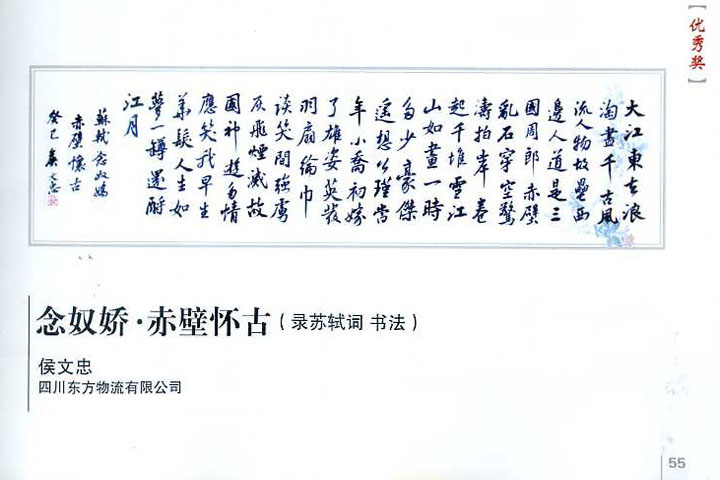 【优秀奖】
大江東去浪
淘盡千古風
流人物故壘西
邊人道是三
國周郎赤壁
亂石穿空驚
濤拍岸卷
起千堆雪江
山如畫一時
多少豪傑
遙想公瑾當
年小喬初嫁
了雄姿英發
羽扇綸巾
談笑間強虜
灰飛煙滅故
國神遊多情
應笑我早生
華髮人生如
夢一罇還酹
江月
蘇軾念奴嬌
赤壁懷古
癸巳侯文忠
念奴娇·赤壁怀古（录苏轼词 书法）
侯文忠
四川东方物流有限公司
55